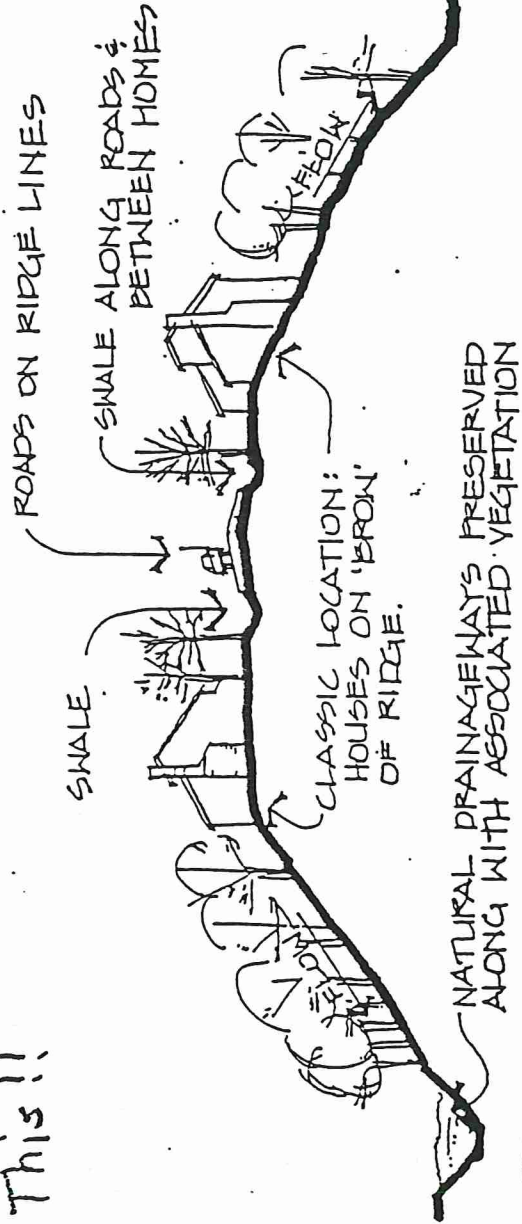 This!!
ROADS ON RIDGE LINES
SWALE
SWALE ALONG ROADS &
BETWEEN HOMES
FLOW
FLOW
CLASSIC LOCATION:
HOUSES ON 'BROW'
OF RIDGE.
NATURAL DRAINAGEWAYS PRESERVED
ALONG WITH ASSOCIATED VEGETATION